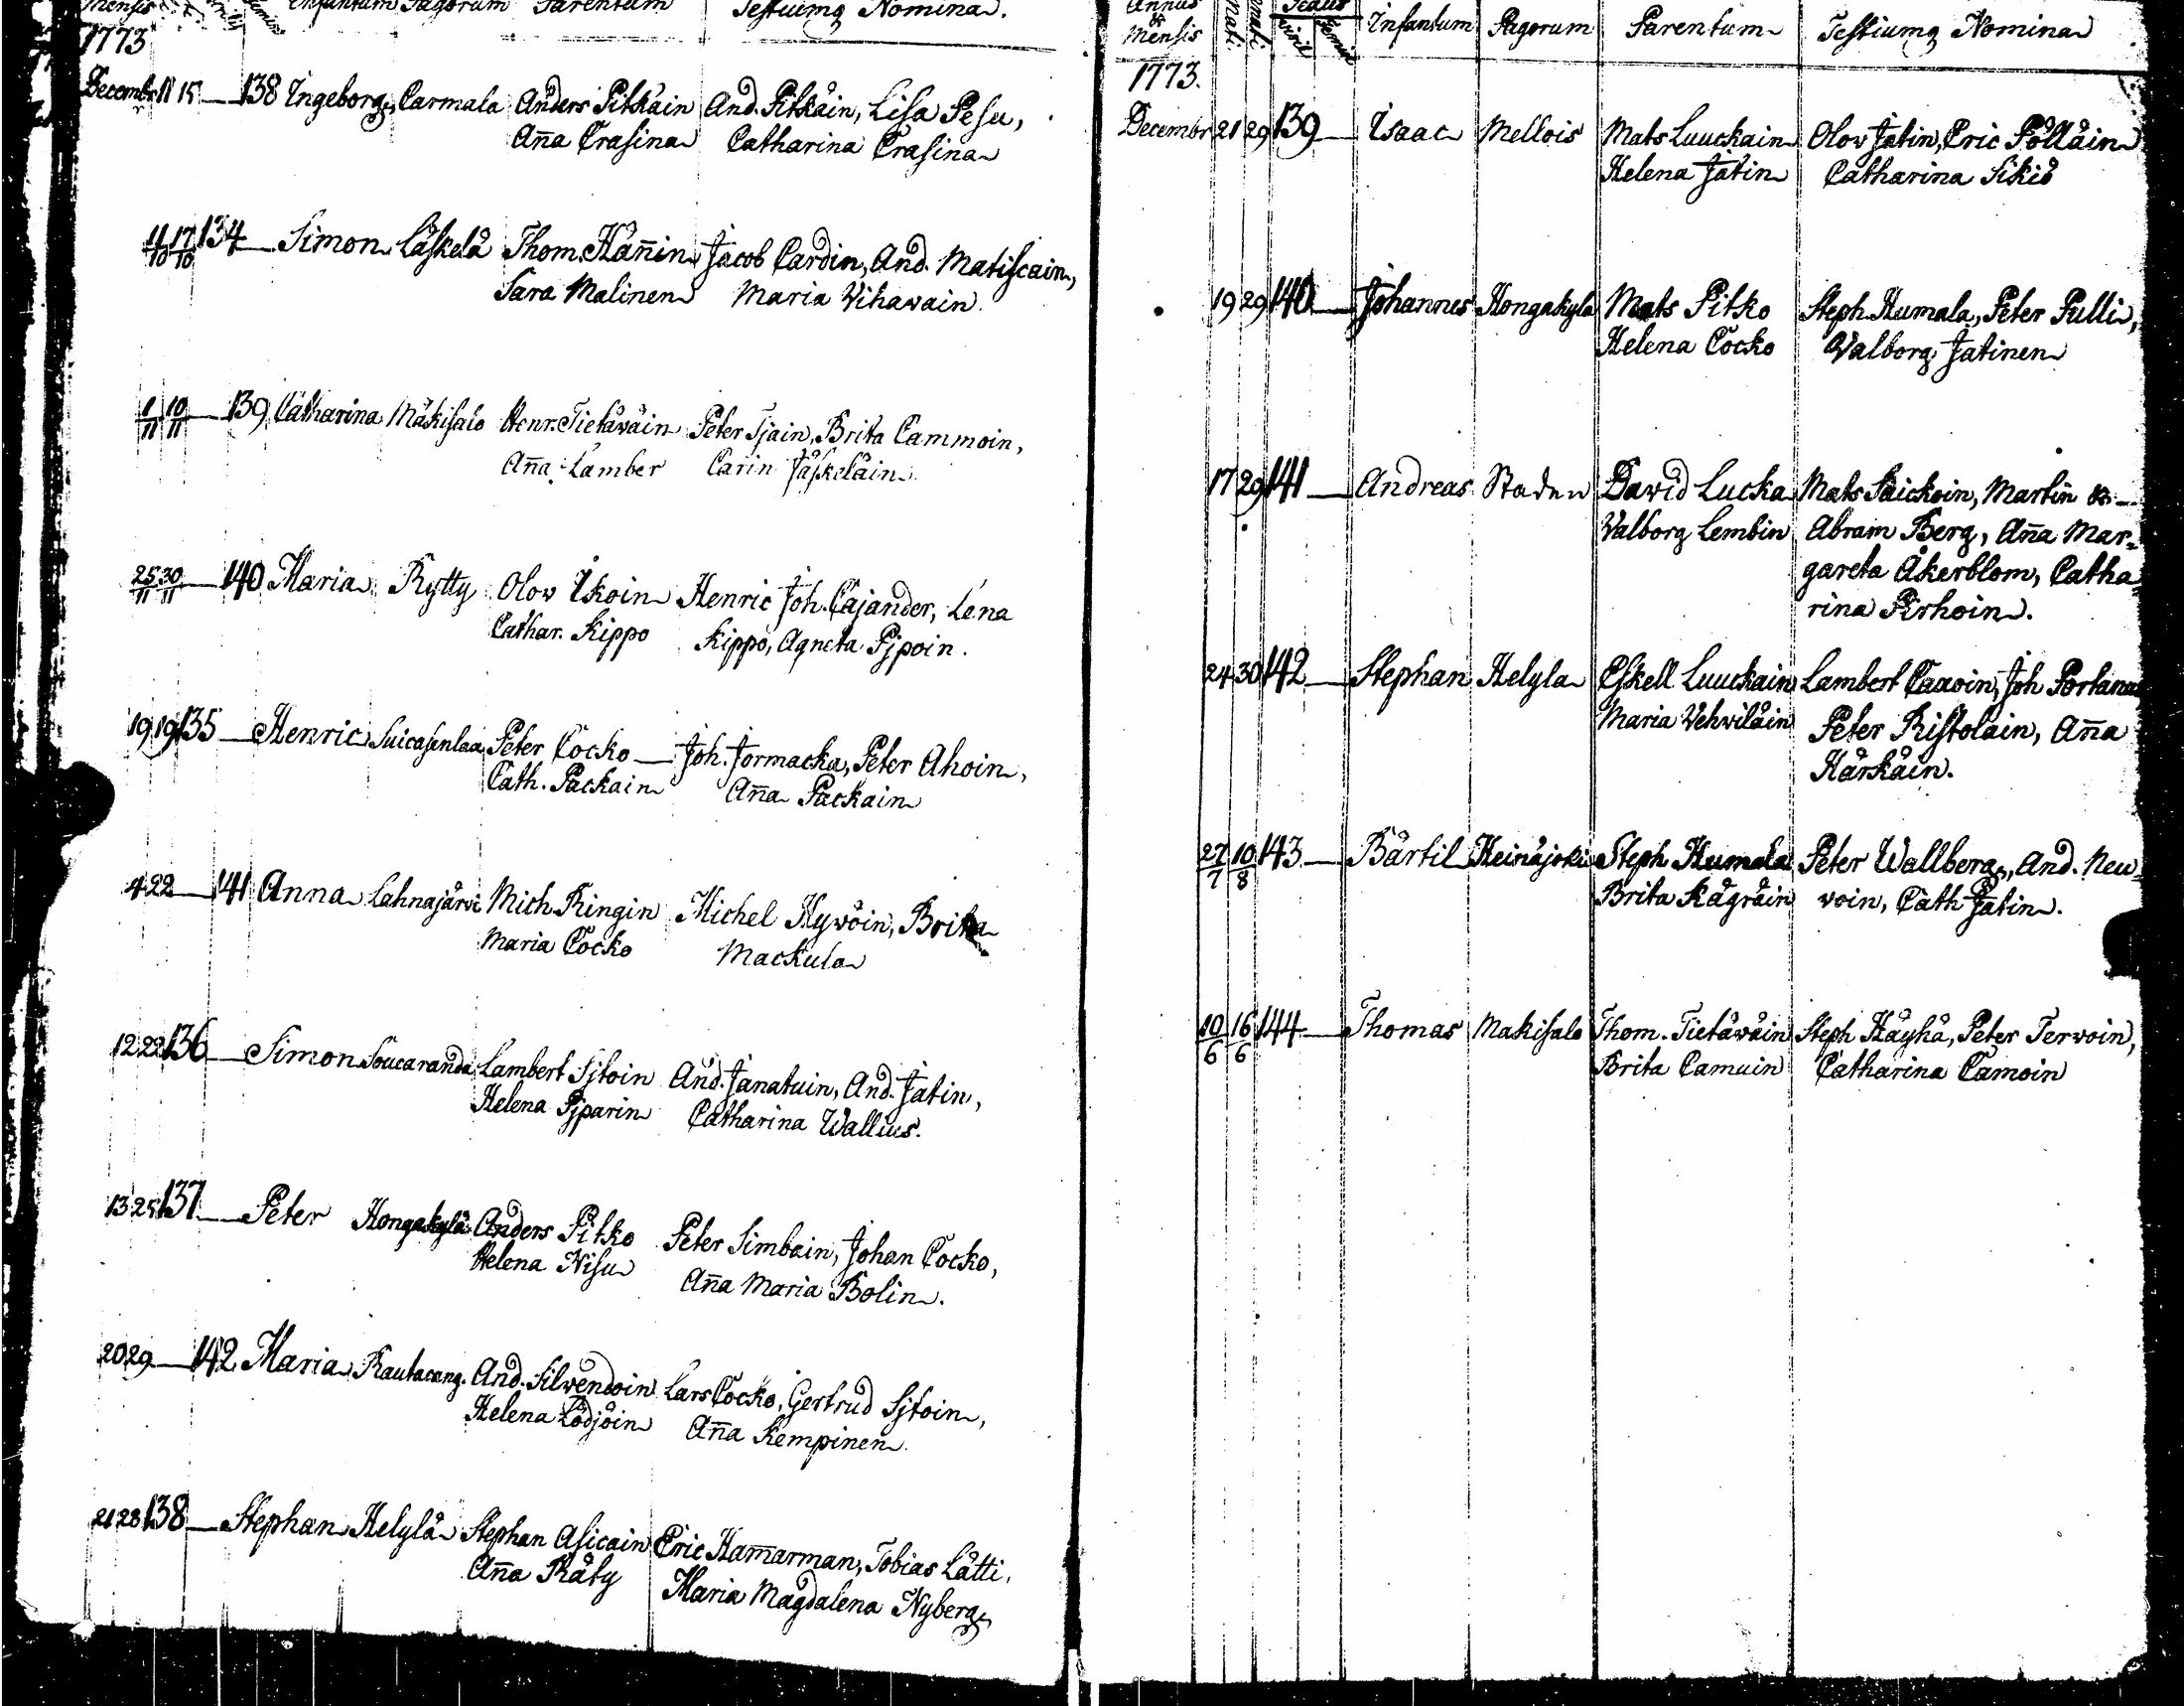 Mensis Infantum Pagorum Parentum Testiumq Nomina.
1773
Decembr 11 15 138 Ingeborg Carmala Anders Pitkäin And. Pitkäin, Lisa Pesu,
Ana Trasina Catharina Trasina
11/10 17/10 134 Simon Läskelä Thom. Hänin Jacob Cardin, And. Matiscain,
Sara Malinen Maria Vihavain.
1/11 10/11 139 Catharina Mäkisalo Henr. Tietäväin Peter Tjain, Brita Cammoin,
Ana Lamber Carin Jäskeläin.
25/11 30/11 140 Maria Rytty Olov Ikoin Henric Joh. Cajander, Lena
Cathar. Kippo Kippo, Agneta Pjpoin.
19 19 135 Henric Suicasenlax Peter Cocko Joh. Jormacka, Peter Ahoin,
Cath. Packain Ana Packain
4 22 141 Anna Lahnajärvi Mich Ringin Michel Hyvöin, Brita
Maria Cocko Mackula
12 22 136 Simon Soucaranda Lambert Sjtoin And. Janatuin, And. Jatin,
Helena Pjparin Catharina Wallius.
13 25 137 Peter Hongakylä Anders Pitko Peter Simbain, Johan Cocko,
Helena Nisu Ana Maria Bolin.
20 29 142 Maria Rautacang. And. Silvendoin Lars Cocko, Gertrud Sjtoin,
Helena Lödjöin Ana Kempinen.
21 28 138 Stephan Helylä Stephan Asicain Eric Hamarman, Tobias Lätti,
Ana Räty Maria Magdalena Nyberg
Annus
&
Mensis Nati Infantum Pagorum Parentum Testiumq Nomina
1773.
Decembr 21 29 139 Isaac Mellois Mats Luuckain Olov Jatin, Eric Pölläin
Helena Jatin Catharina Sikiö
19 29 140 Johannes Hongakyla Mats Pitko Steph. Humala, Peter Pulli,
Helena Cocko Valborg Jatinen
17 29 141 Andreas Staden David Lucka Mats Saickoin, Martin &
Valborg Lembin Abram Berg, Ana Mar=
gareta Åkerblom, Catha
rina Pirhoin.
24 30 142 Stephan Helyla Eskell Luuckain Lambert Caxoin, Joh
Maria Vehviläin Peter Ristolain, Ana
Härkäin.
27/7 10/8 143 Bärtil Heinäjoki Steph Humala Peter Wallberg, And. Neu=
Brita Kägräin voin, Cath Jatin.
10/6 16/6 144 Thomas Makisalo Thom. Tietäväin Steph Häyhä, Peter Tervoin,
Brita Camuin Catharina Camoin